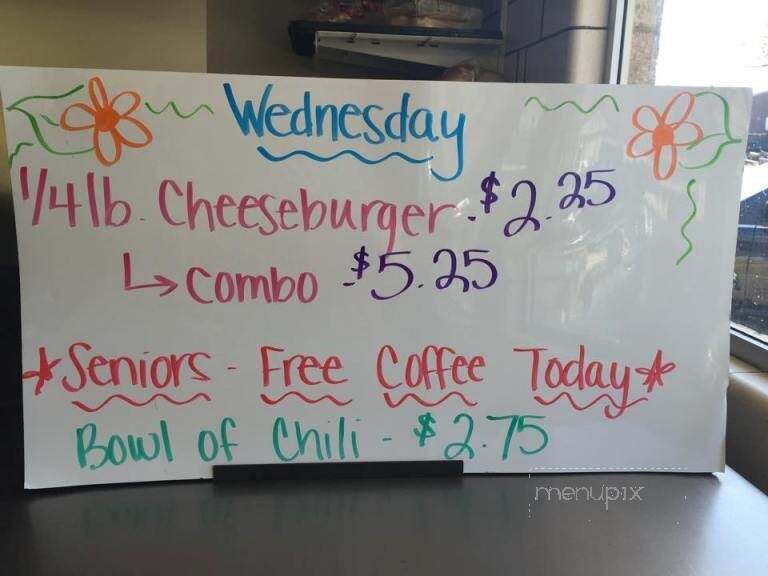 Wednesday
1/4 lb. Cheeseburger - $2.25
↳ Combo - $5.25
*Seniors - Free Coffee Today*
Bowl of Chili - $2.75
menupix